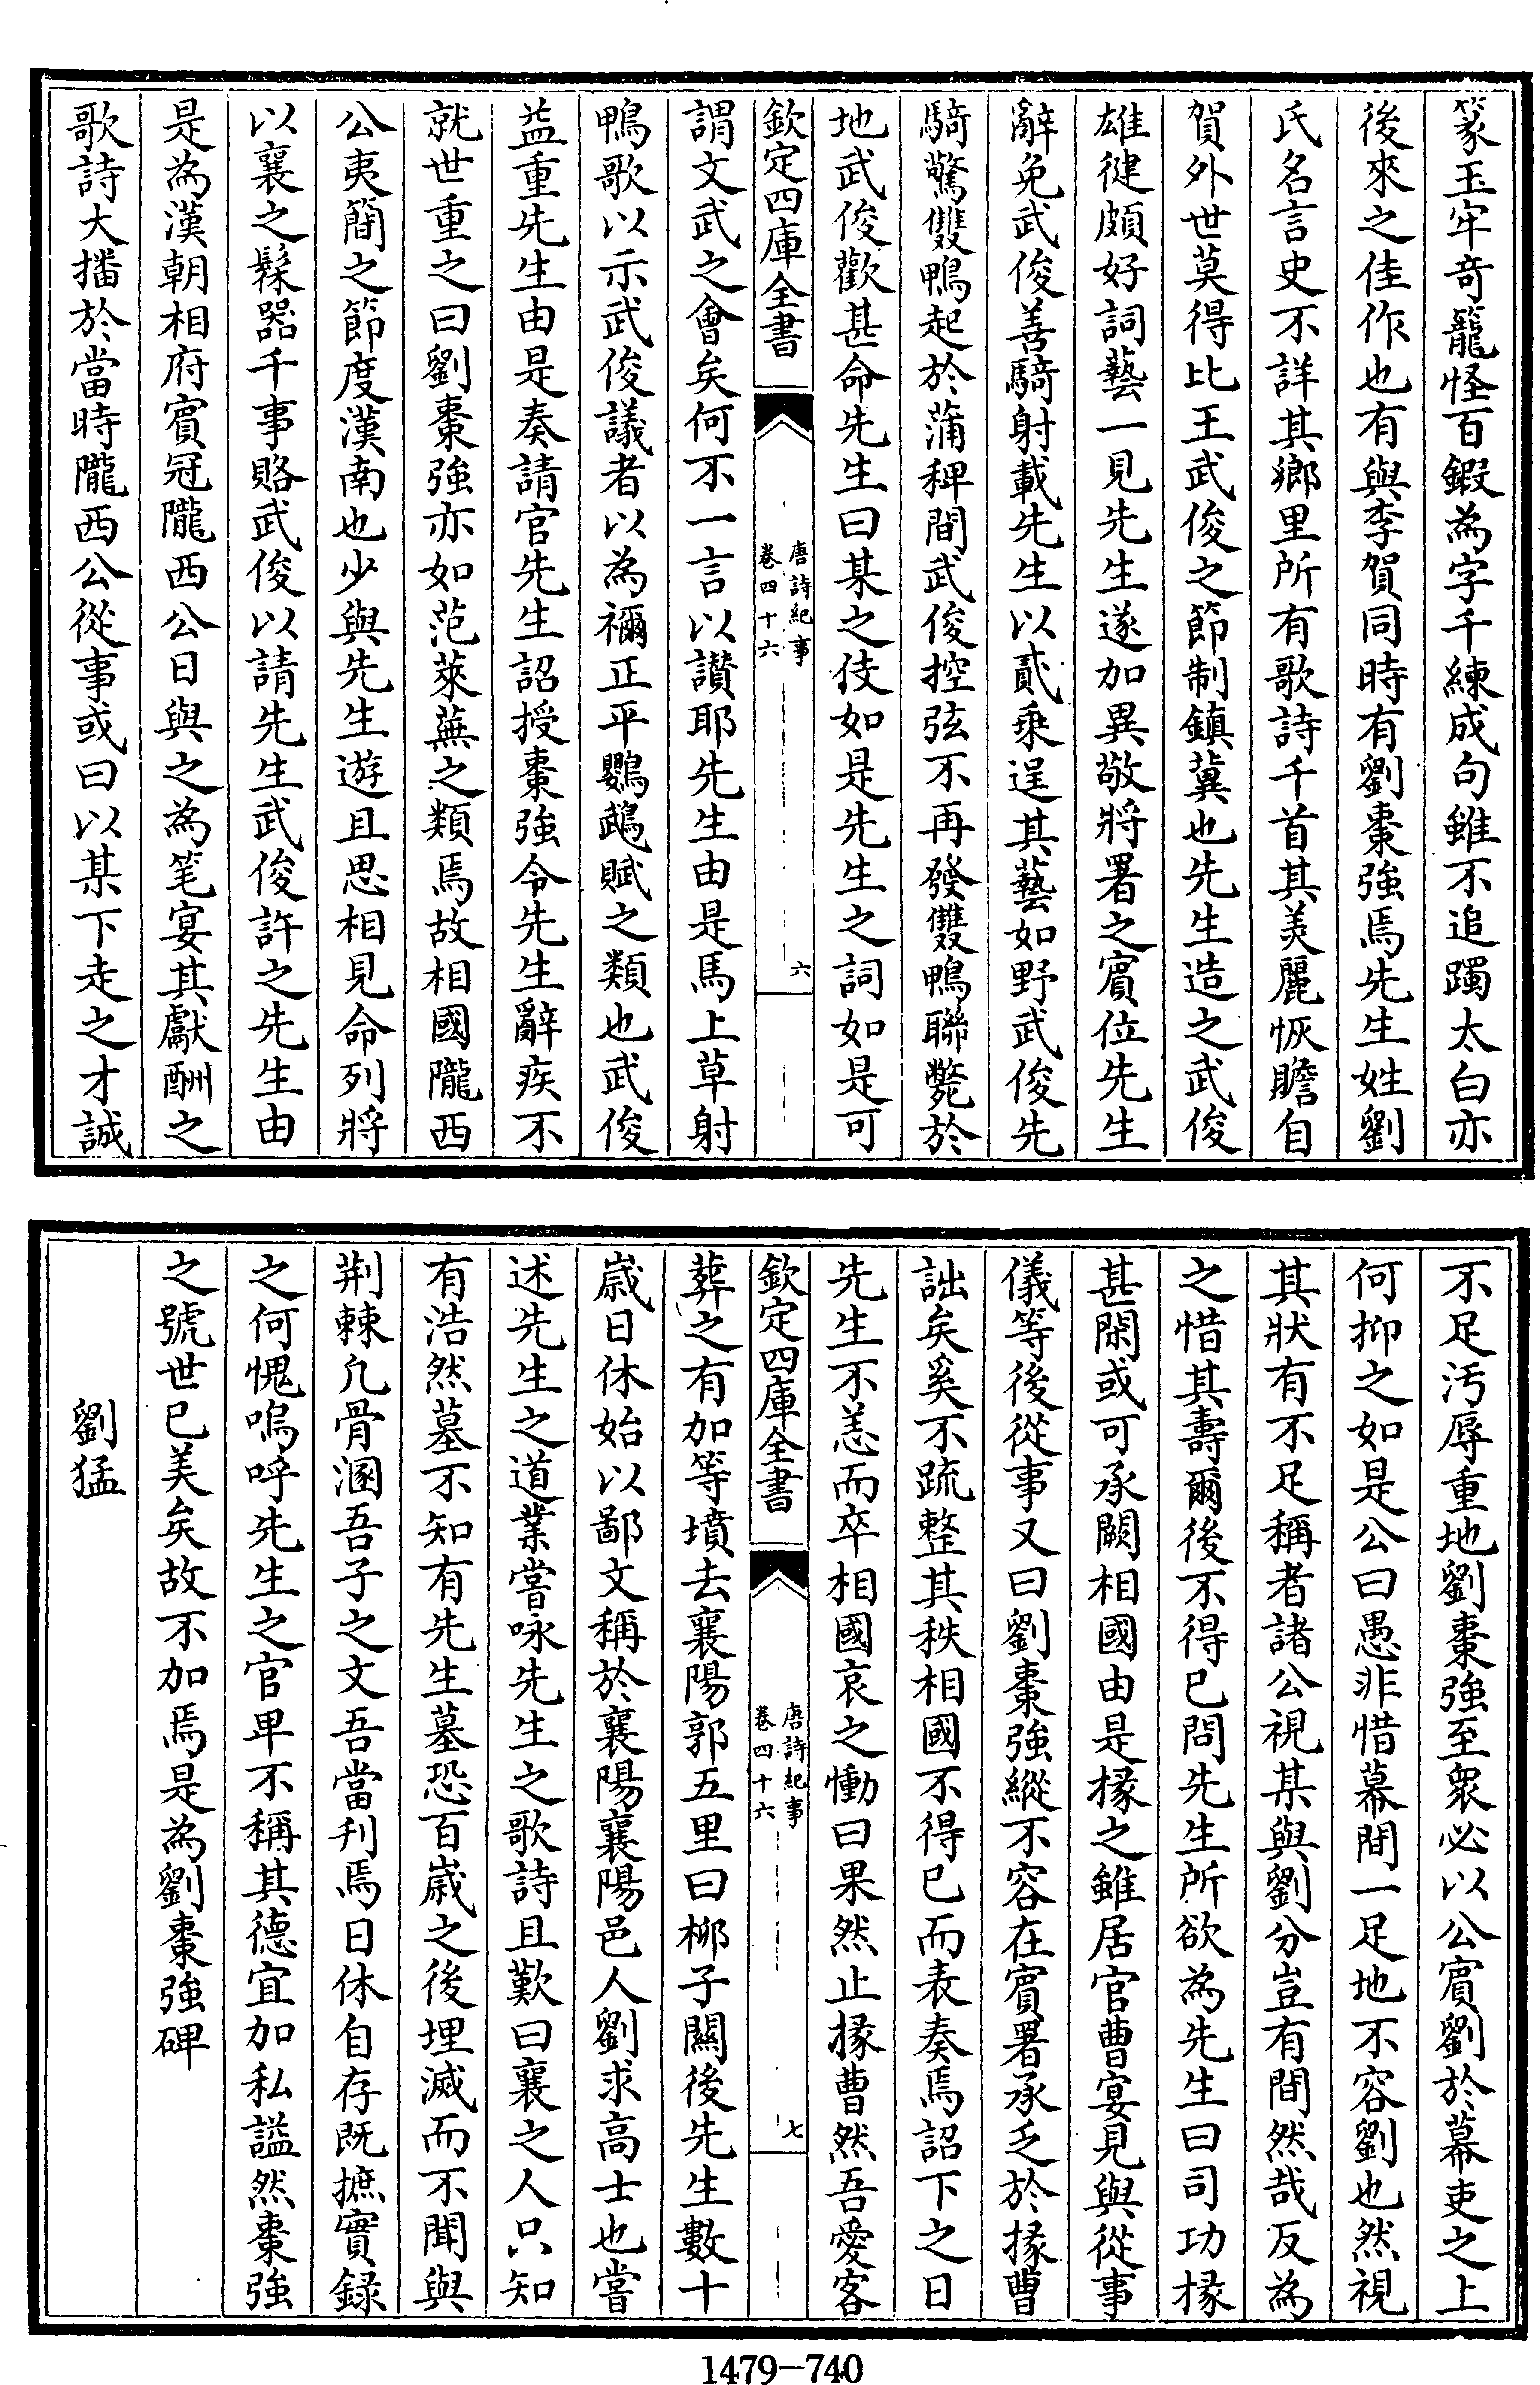 篆玉牢奇籠怪百鍛為字千練成句雖不追躅太白亦
後來之佳作也有與李賀同時有劉棗強焉先生姓劉
氏名言史不詳其鄉里所有歌詩千首其美麗恢贍自
賀外世莫得比王武俊之節制鎮冀也先生造之武俊
雄徤頗好詞藝一見先生遂加異敬將署之賓位先生
辭免武俊善騎射載先生以貳乗逞其藝如野武俊先
騎驚雙鴨起於蒲稗間武俊控弦不再發雙鴨聯斃於
地武俊歡甚命先生曰某之伎如是先生之詞如是可
欽定四庫全書
唐詩紀事
卷四十六
六
謂文武之會矣何不一言以讃耶先生由是馬上草射
鴨歌以示武俊議者以為禰正平鸚鵡賦之類也武俊
益重先生由是奏請官先生詔授棗強令先生辭疾不
就世重之曰劉棗強亦如范萊蕪之類焉故相國隴西
公夷簡之節度漢南也少與先生遊且思相見命列將
以襄之髹器千事賂武俊以請先生武俊許之先生由
是為漢朝相府賓冠隴西公日與之為笔宴其獻酬之
歌詩大播於當時隴西公從事或曰以某下走之才誠
不足汚辱重地劉棗強至衆必以公賓劉於幕吏之上
何抑之如是公曰愚非惜幕間一足地不容劉也然視
其狀有不足稱者諸公視某與劉分豈有間然哉反為
之惜其壽爾後不得已問先生所欲為先生曰司功掾
甚閑或可承闕相國由是掾之雖居官曹宴見與從事
儀等後從事又曰劉棗強縱不容在賓署承乏於掾曹
詘矣奚不疏整其秩相國不得已而表奏焉詔下之日
先生不恙而卒相國哀之慟曰果然止掾曹然吾愛客
欽定四庫全書
唐詩紀事
卷四十六
七
葬之有加等墳去襄陽郭五里曰栁子關後先生數十
歲日休始以鄙文稱於襄陽襄陽邑人劉求高士也嘗
述先生之道業嘗咏先生之歌詩且歎曰襄之人只知
有浩然墓不知有先生墓恐百嵗之後埋滅而不聞與
荆棘凢骨溷吾子之文吾當刋焉日休自存既摭實録
之何愧嗚呼先生之官卑不稱其德宜加私謚然棗強
之號世已美矣故不加焉是為劉棗強碑
劉猛
1479-740